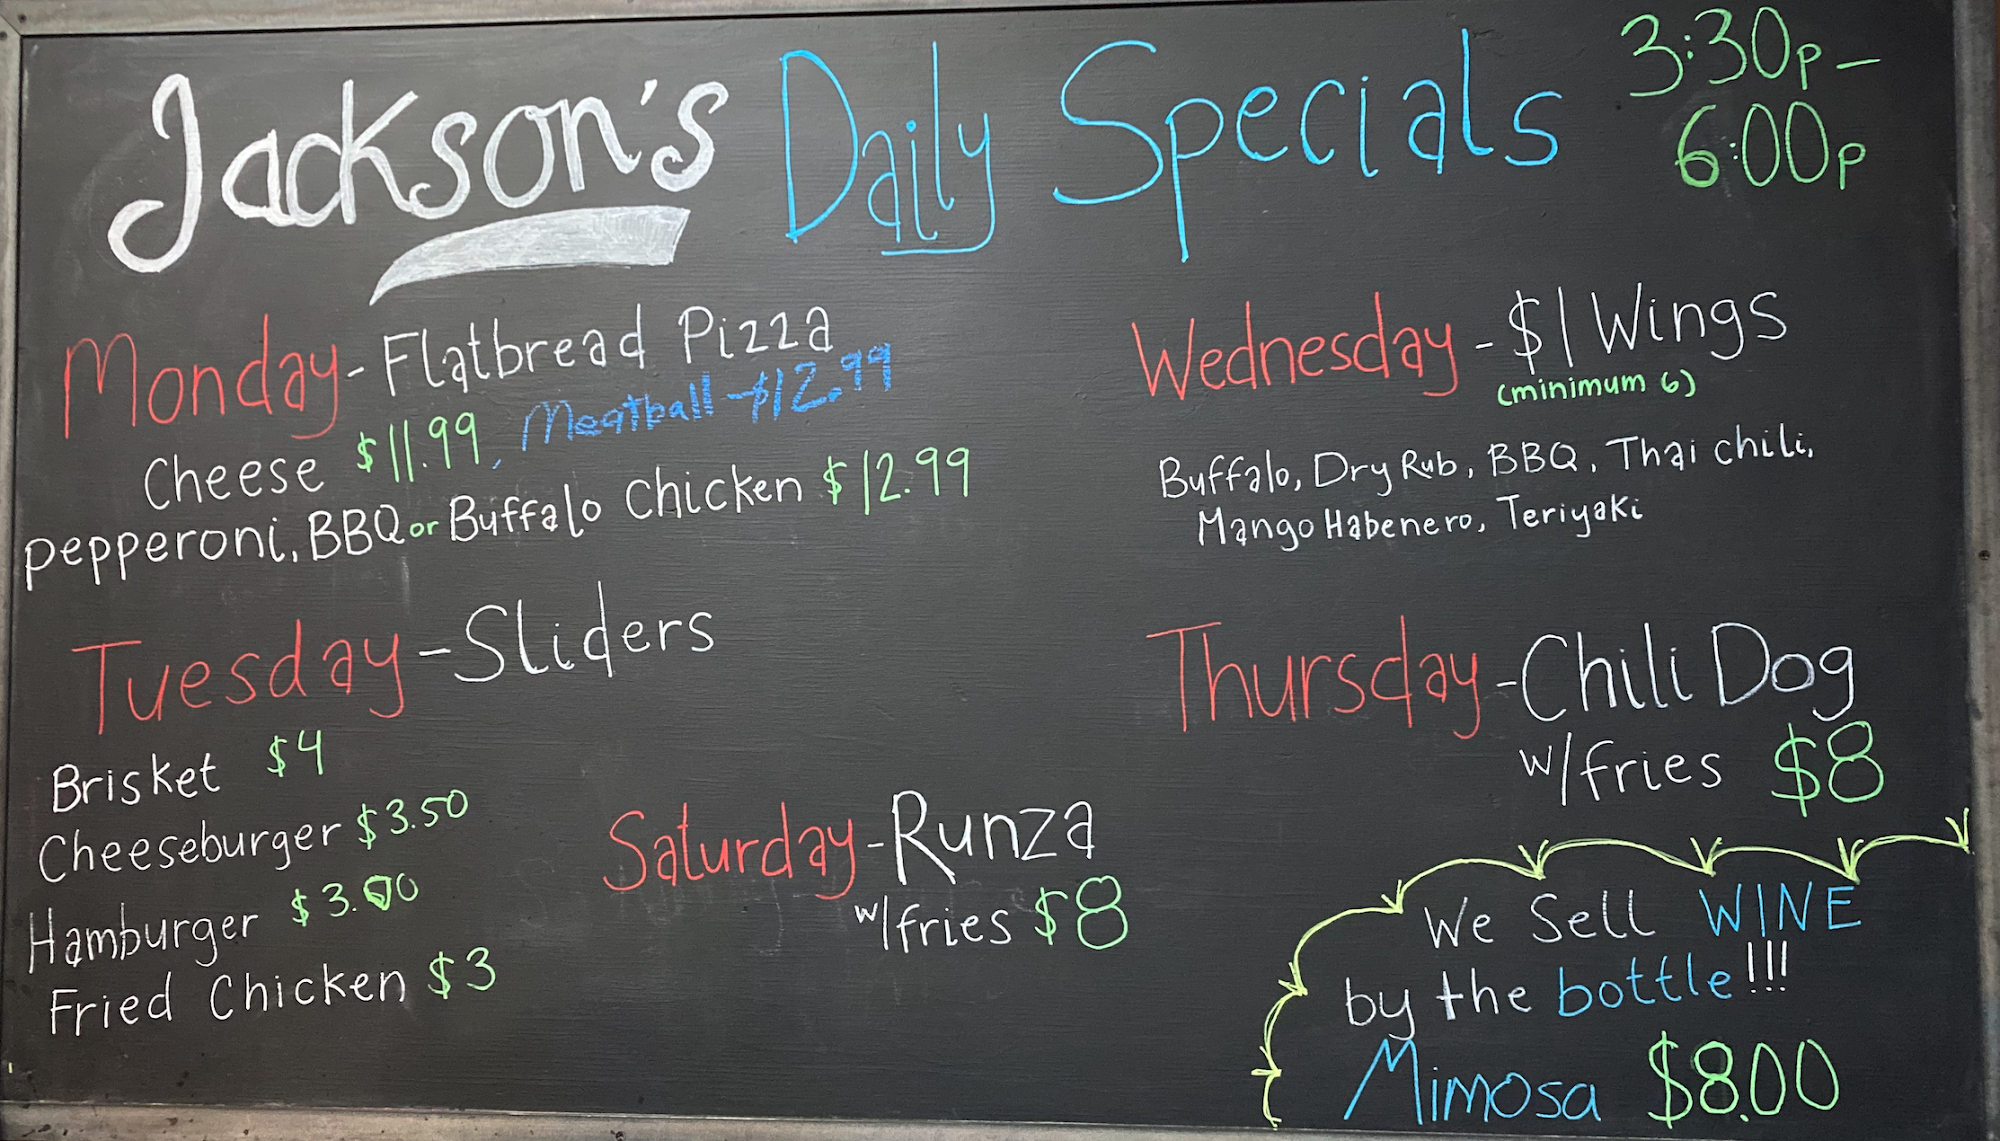 Jackson's Daily Specials
3:30p-
6:00p
Monday-Flatbread Pizza
Cheese $11.99, Meatball-$12.99
pepperoni, BBQ or Buffalo Chicken $12.99
Tuesday-Sliders
Brisket $4
Cheeseburger $3.50
Hamburger $3.00
Fried Chicken $3
Wednesday-$1 Wings
(minimum 6)
Buffalo, Dry Rub, BBQ, Thai chili,
Mango Habenero, Teriyaki
Thursday-Chili Dog
w/fries $8
Saturday-Runza
w/fries $8
We Sell WINE
by the bottle!!!
Mimosa $8.00